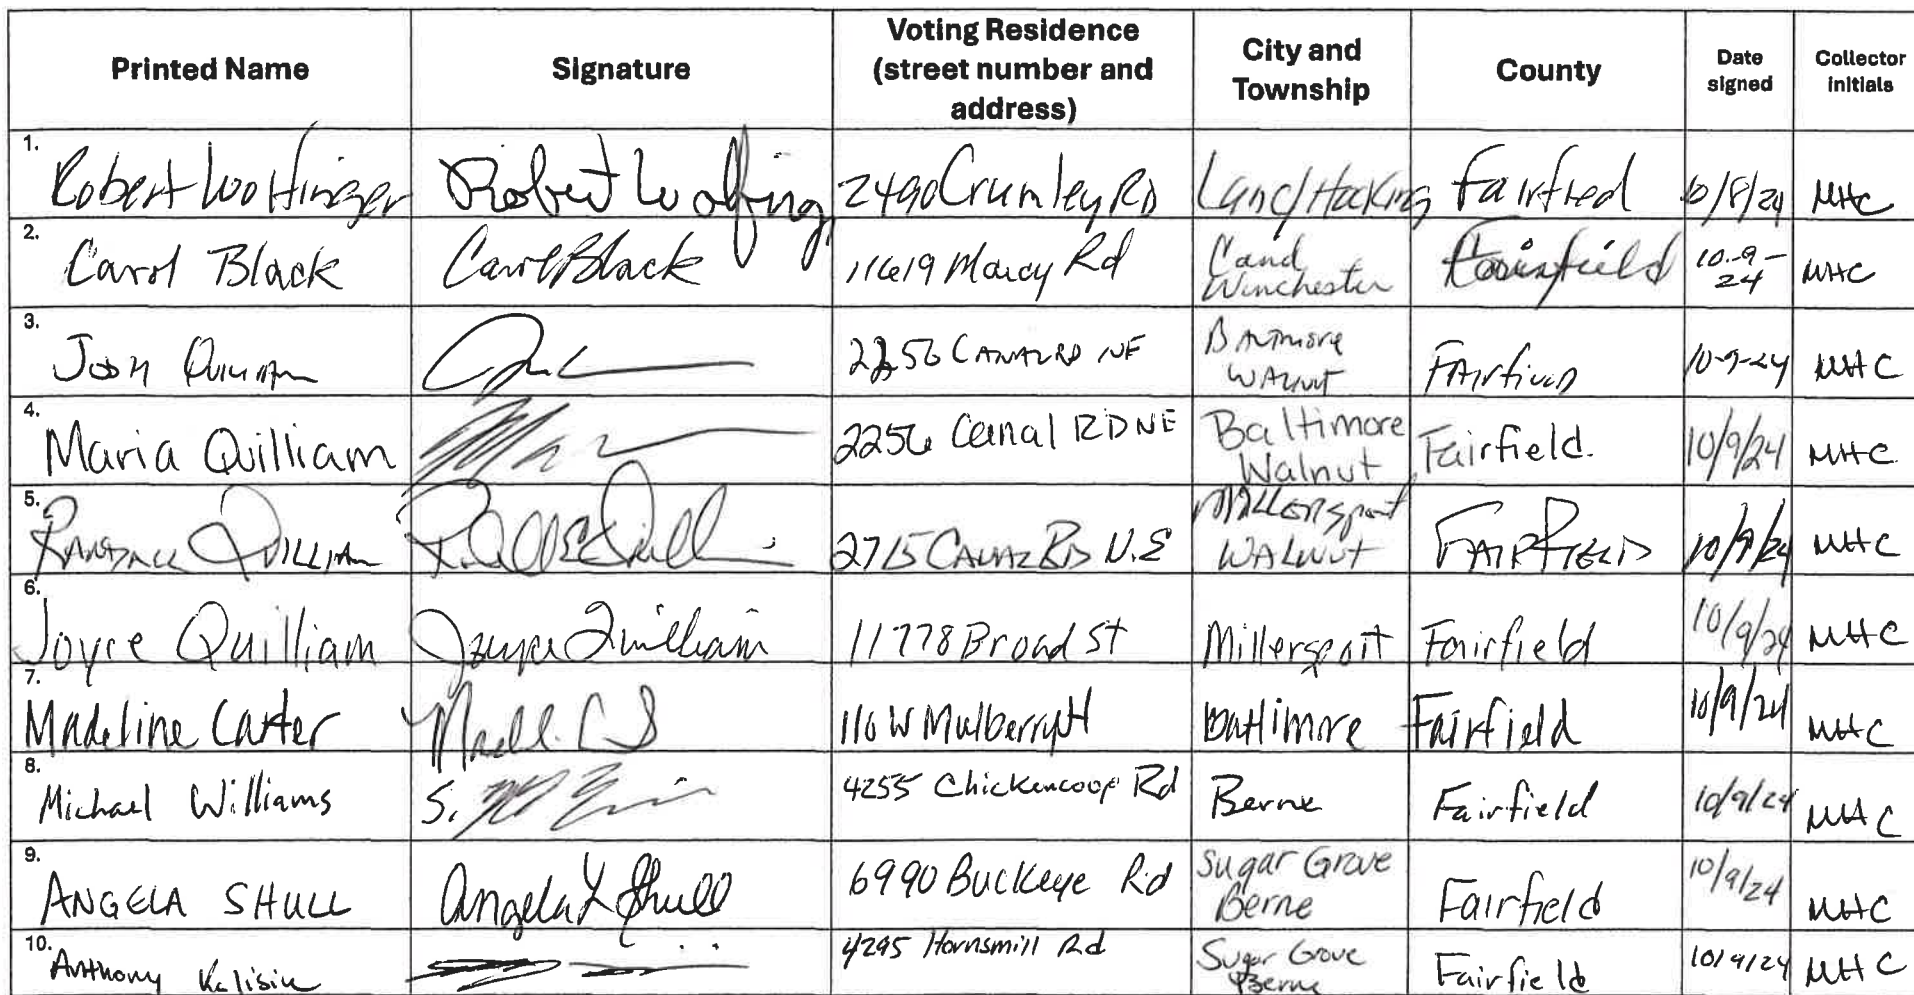 Printed Name Signature Voting Residence (street number and address) City and Township County Date signed Collector initials
1. Robert Wolfinger Robert Wolfing 2490 Crumley RD Lanc/Hocking Fairfied 10/8/24 MHC
2. Carol Black Carol Black 11619 Marcy Rd Canal Winchester Fairfield 10-9-24 MHC
3. Josh 2256 CANAL RD NE Baltimore WALNUT FAIRFIELD 10-9-24 MHC
4. Maria Quilliam 2256 Canal RD NE Baltimore Walnut Fairfield. 10/9/24 MHC
5. RANDALL QUILLIAM 2715 CANAL RD N.E Millersport WALNUT FAIRFIELD 10/9/24 MHC
6. Joyce Quilliam Joyce Quilliam 11778 Broad St Millersport Fairfield 10/9/24 MHC
7. Madeline Carter 110 W Mulberry St Baltimore Fairfield 10/9/24 MHC
8. Michael Williams S. 4255 Chickencoop Rd Berne Fairfield 10/9/24 MHC
9. ANGELA SHULL Angela L Shull 6990 Buckeye Rd Sugar Grove Berne Fairfield 10/9/24 MHC
10. Anthony 4295 Hornsmill Rd Sugar Grove Berne Fairfield 10/9/24 MHC